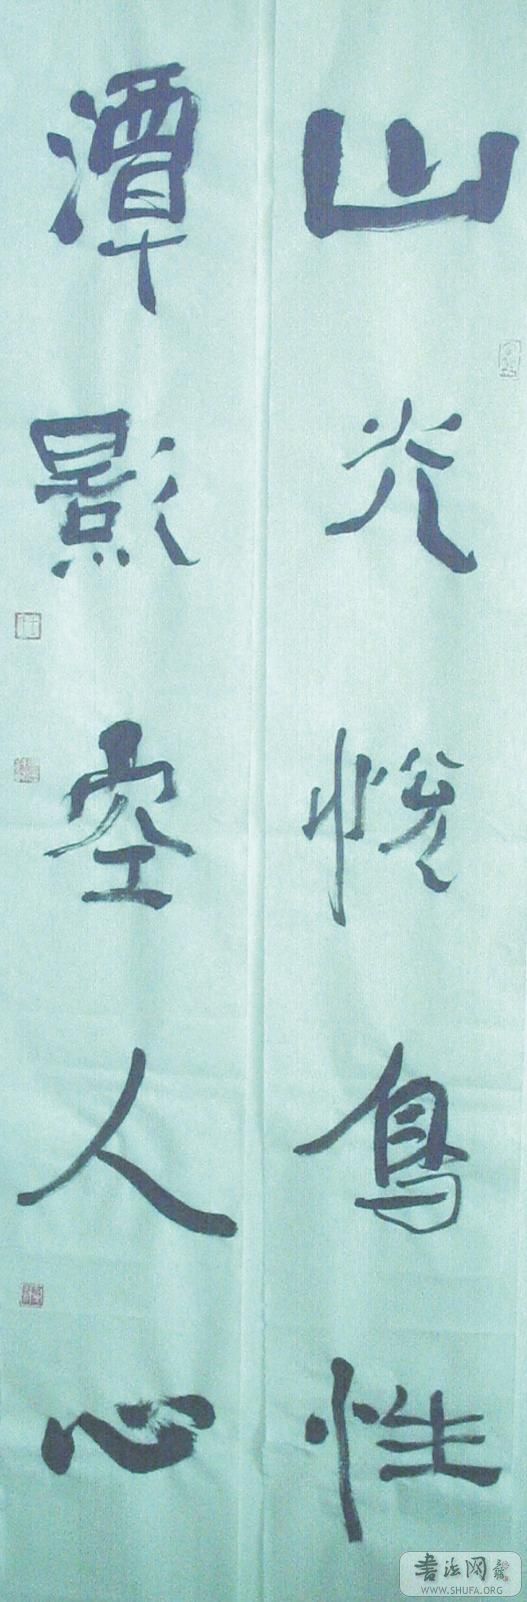 山光悦鸟性
潭影空人心
书法网
WWW.SHUFA.ORG